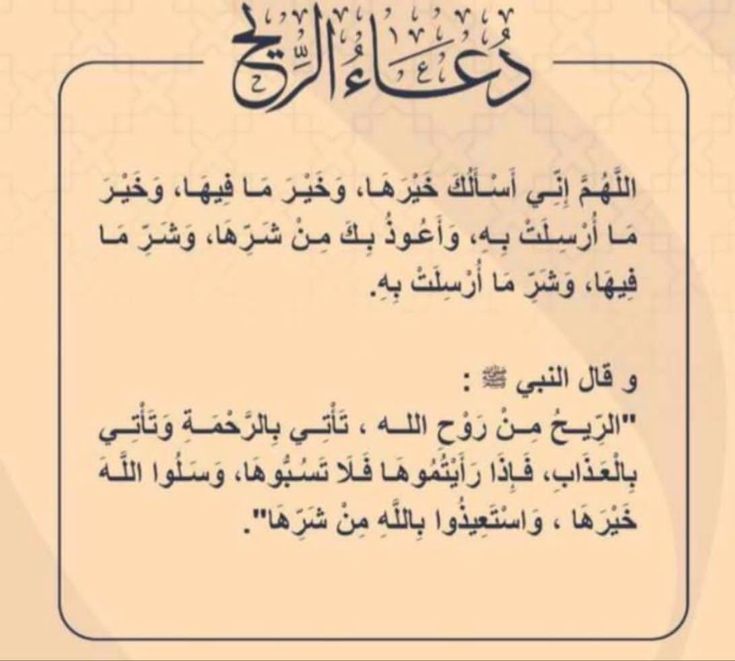 دُعَاءُ الرِّيحِ
اللَّهُمَّ إِنِّي أَسْأَلُكَ خَيْرَهَا، وَخَيْرَ مَا فِيهَا، وَخَيْرَ
مَا أُرْسِلَتْ بِهِ، وَأَعُوذُ بِكَ مِنْ شَرِّهَا، وَشَرِّ مَا
فِيهَا، وَشَرِّ مَا أُرْسِلَتْ بِهِ.
و قال النبي ﷺ :
"الرِّيحُ مِنْ رَوْحِ الله ، تَأْتِي بِالرَّحْمَةِ وَتَأْتِي
بِالْعَذَابِ، فَإِذَا رَأَيْتُمُوهَا فَلَا تَسُبُّوهَا، وَسَلُوا اللَّهَ
خَيْرَهَا ، وَاسْتَعِيذُوا بِاللَّهِ مِنْ شَرِّهَا".